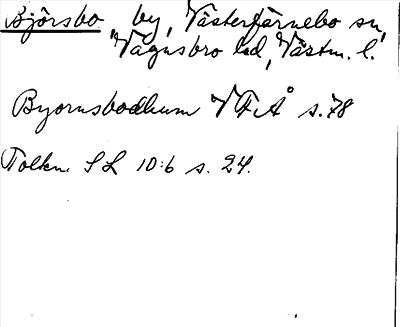 Björsbo, by, Västerfärnebo sn,
Vagnsbro hd, Västm. l.
Byornsbodhum VFÅ s.78
Tolkn. SL 10:6 s. 24.